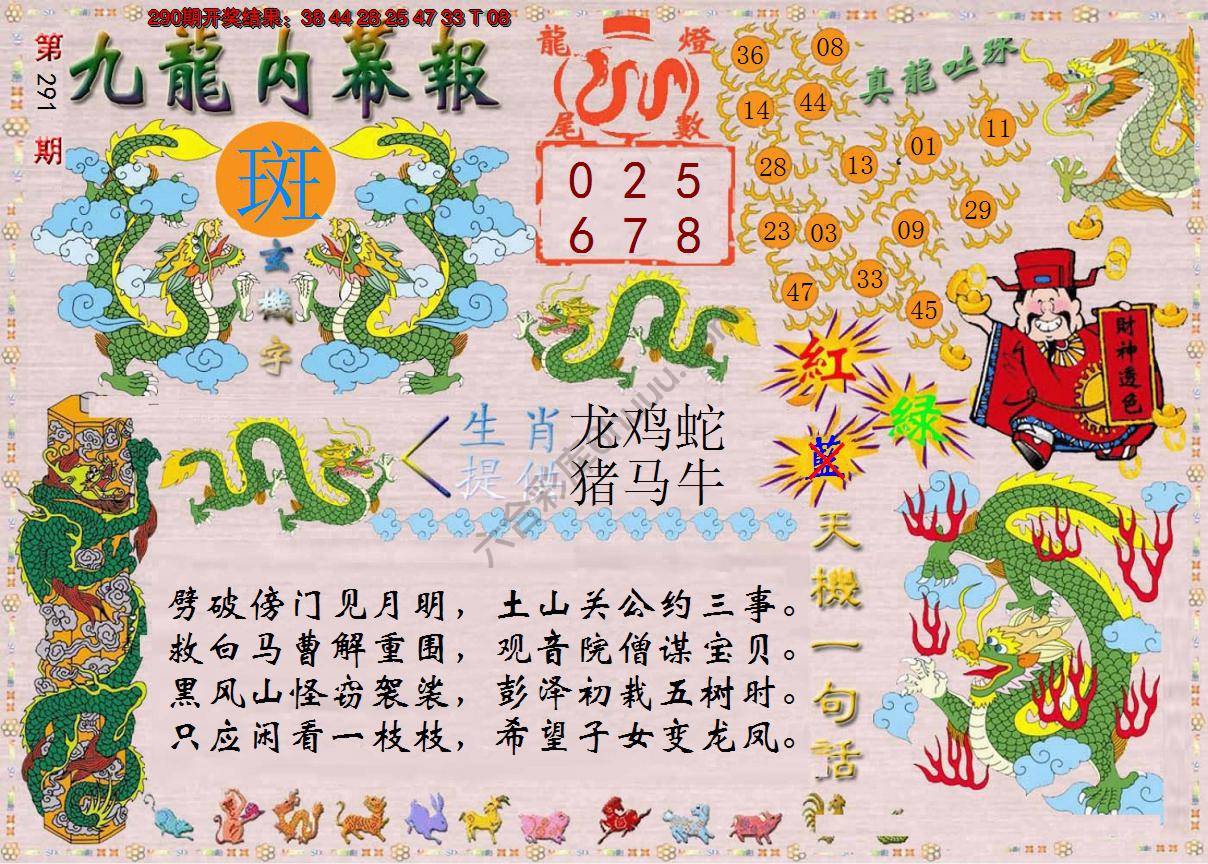 290期开奖结果：38 44 28 25 47 33 T 08
第291期
九龍内幕報
斑
玄機字
龍燈尾數
0 2 5
6 7 8
真龍吐珠
36 08
14 44
28 13 01 11
23 03 09 29
47 33 45
財神透色
紅
緑
藍
生肖 龙鸡蛇
提供 猪马牛
六合彩库
劈破傍门见月明，土山关公约三事。
救白马曹解重围，观音院僧谋宝贝。
黑风山怪窃袈裟，彭泽初栽五树时。
只应闲看一枝枝，希望子女变龙凤。
天機一句話